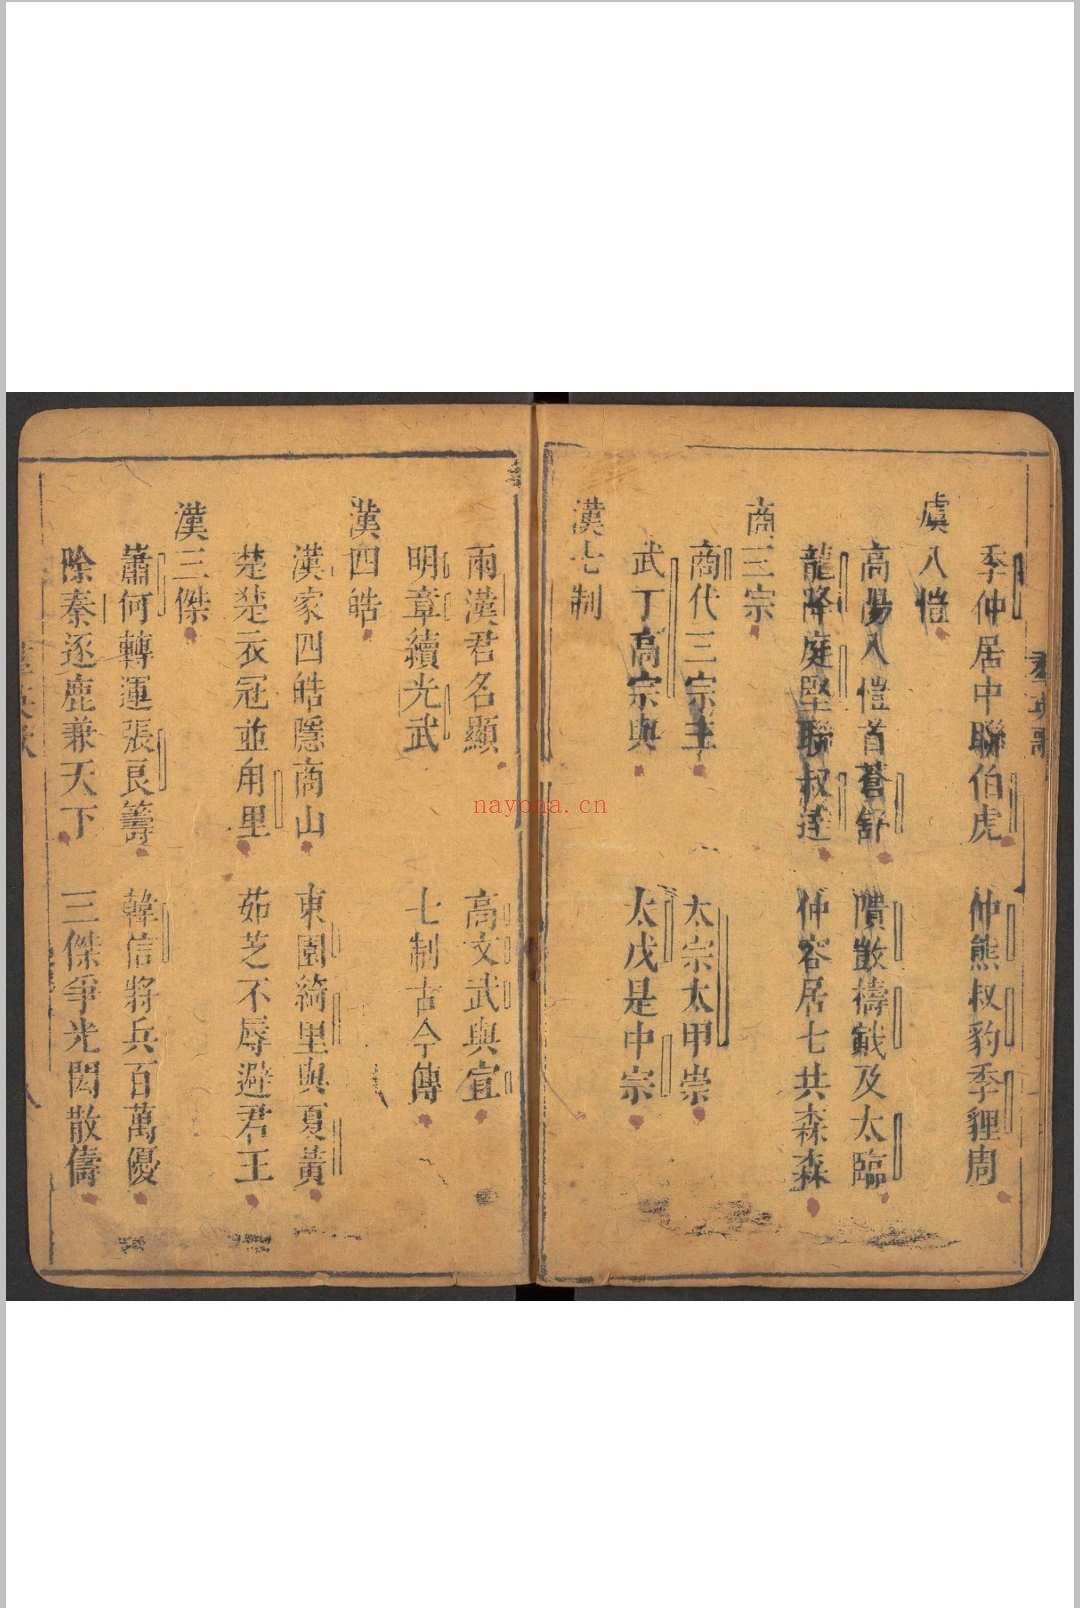 季仲居中聯伯虎　仲熊叔豹季貍周
虞八愷
高陽八愷首蒼舒　隤敳檮戭及太臨
龍降庭堅聯叔達　仲容居七共森森
商三宗
商代三宗主　太宗太甲崇
武丁高宗與　太戊是中宗
漢七制
兩漢君名顯　高文武與宣
明章續光武　七制古今傳
漢四皓
漢家四皓隱商山　東園綺里與夏黃
楚楚衣冠並甪里　茹芝不辱避君王
漢三傑
蕭何轉運張良籌　韓信將兵百萬優
除秦逐鹿兼天下　三傑爭光閎散儔
八
nayona.cn